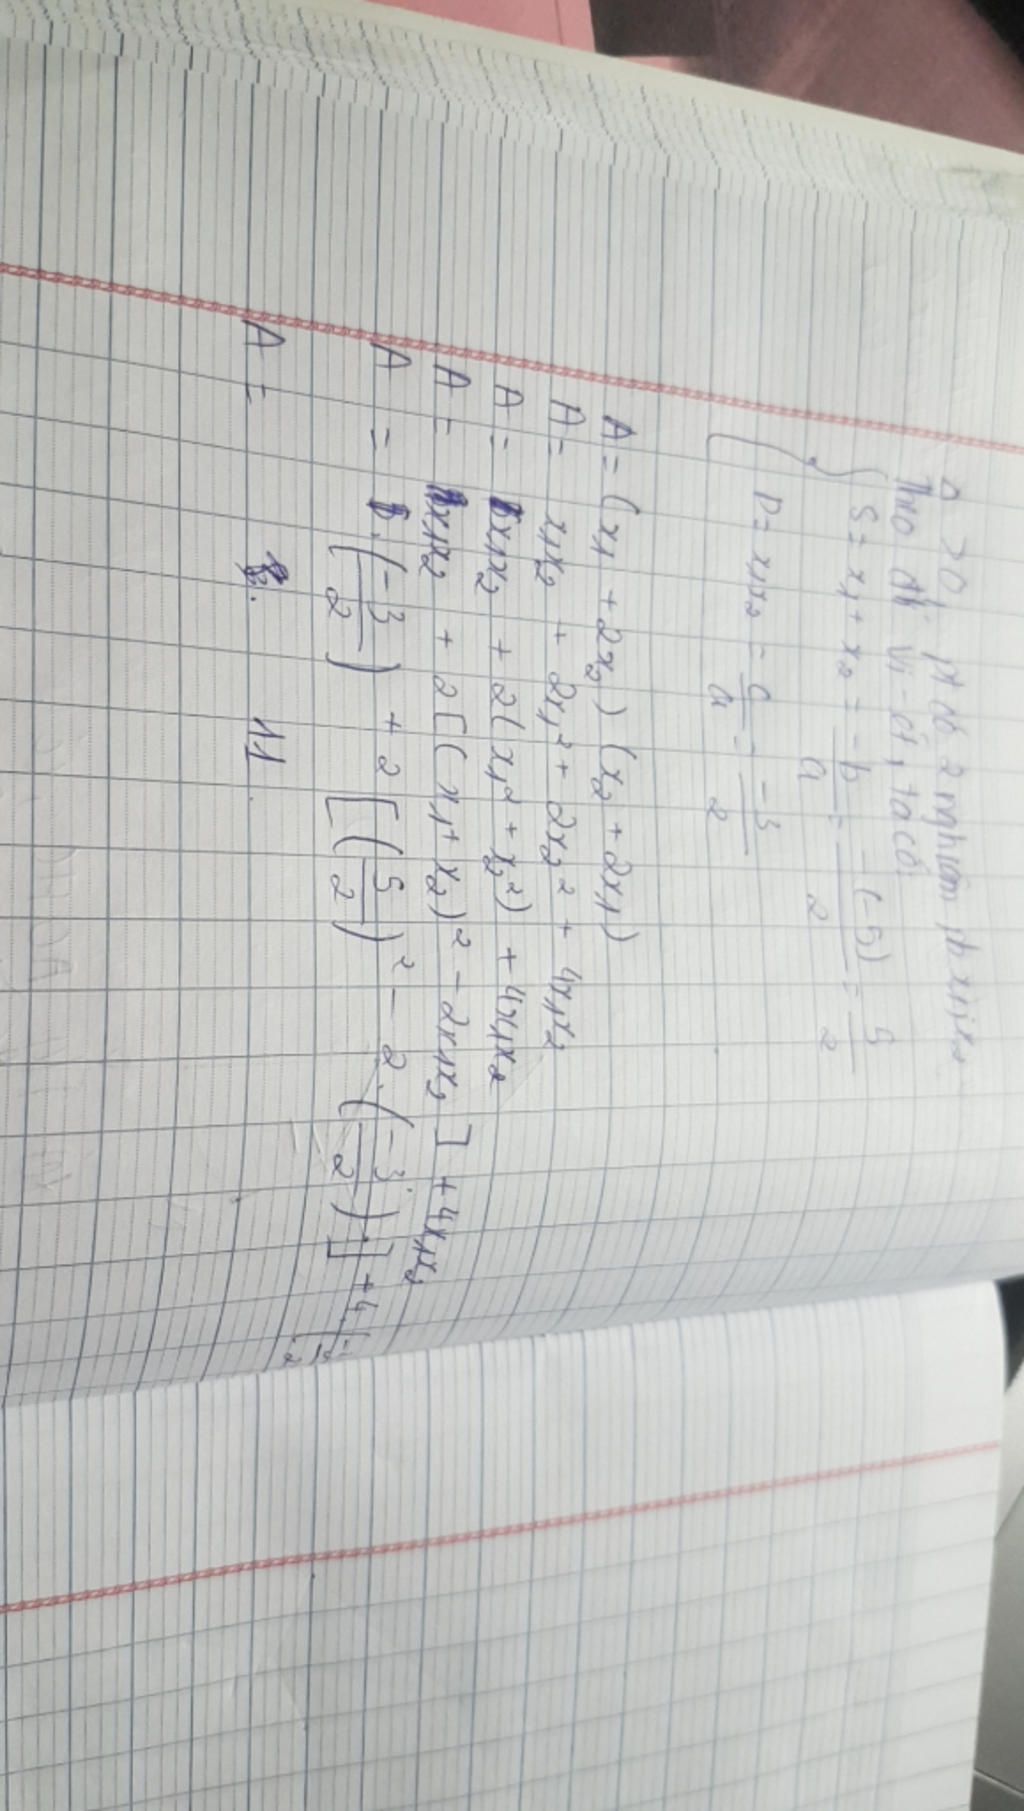 Δ > 0 pt có 2 nghiệm pb x1; x2
Theo đl Vi-ét, ta có:
S = x1 + x2 = -b/a = -(-5)/2 = 5/2
P = x1x2 = c/a = -3/2
A = (x1 + 2x2) (x2 + 2x1)
A = x1x2 + 2x1² + 2x2² + 4x1x2
A = x1x2 + 2(x1² + x2²) + 4x1x2
A = x1x2 + 2[(x1 + x2)² - 2x1x2] + 4x1x2
A = (-3/2) + 2[(5/2)² - 2.(-3/2)] + 4.
A = 11.